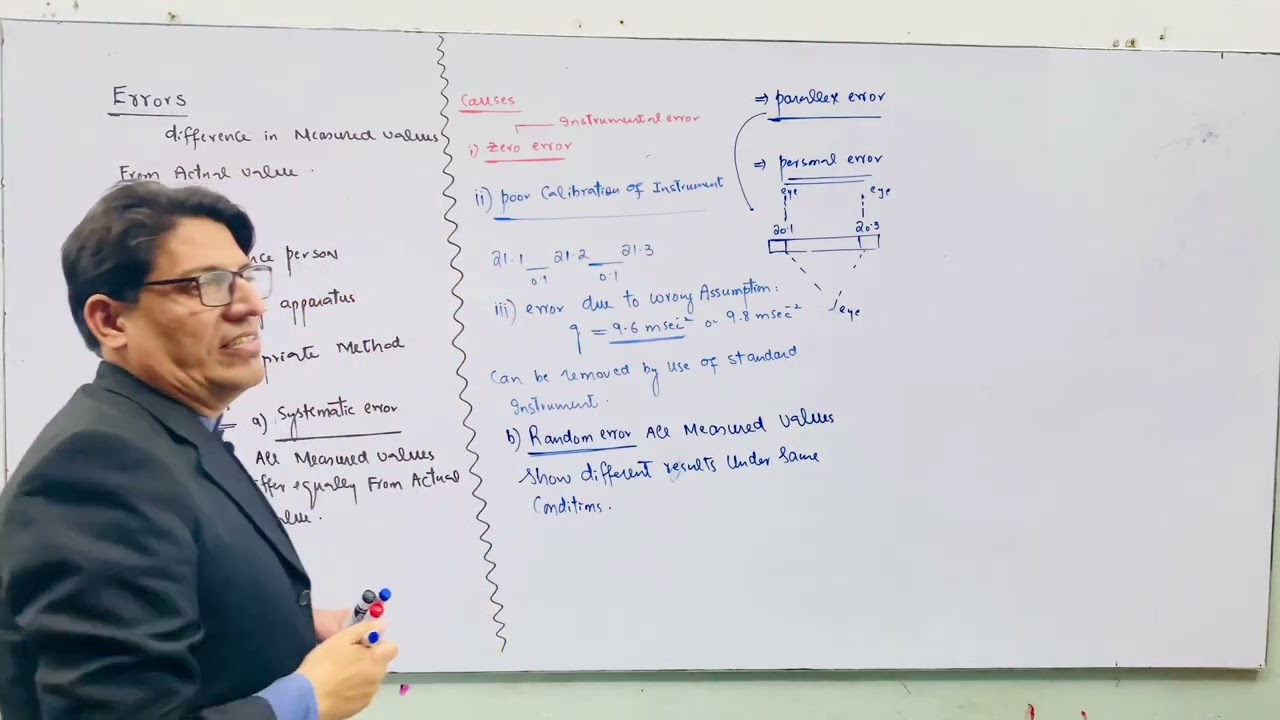 Errors
difference in Measured values
From Actual value.
person
apparatus
Method
a) Systematic error
All Measured values
equally From Actual
Causes
Instrumental error
i) Zero error
ii) poor Calibration of Instrument
21.1 21.2 21.3
0.1 0.1
iii) error due to wrong Assumption:
g = 9.6 msec⁻² or 9.8 msec⁻²
Can be removed by use of standard
Instrument.
b) Random error All Measured values
Show different results Under Same
Conditions.
⇒ parallex error
⇒ personal error
eye eye
20.1 20.3
eye